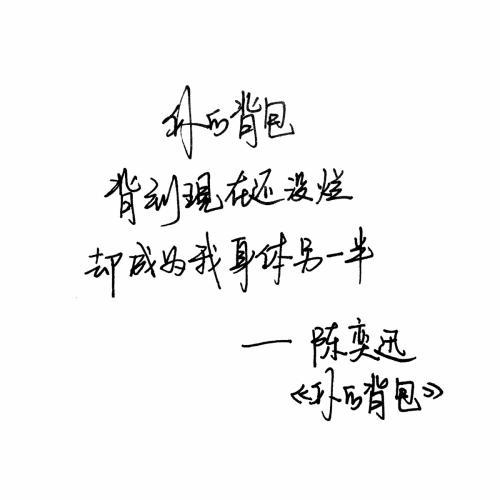 你的背包
背到現在还没烂
却成为我身体另一半
—— 陈奕迅
《你的背包》